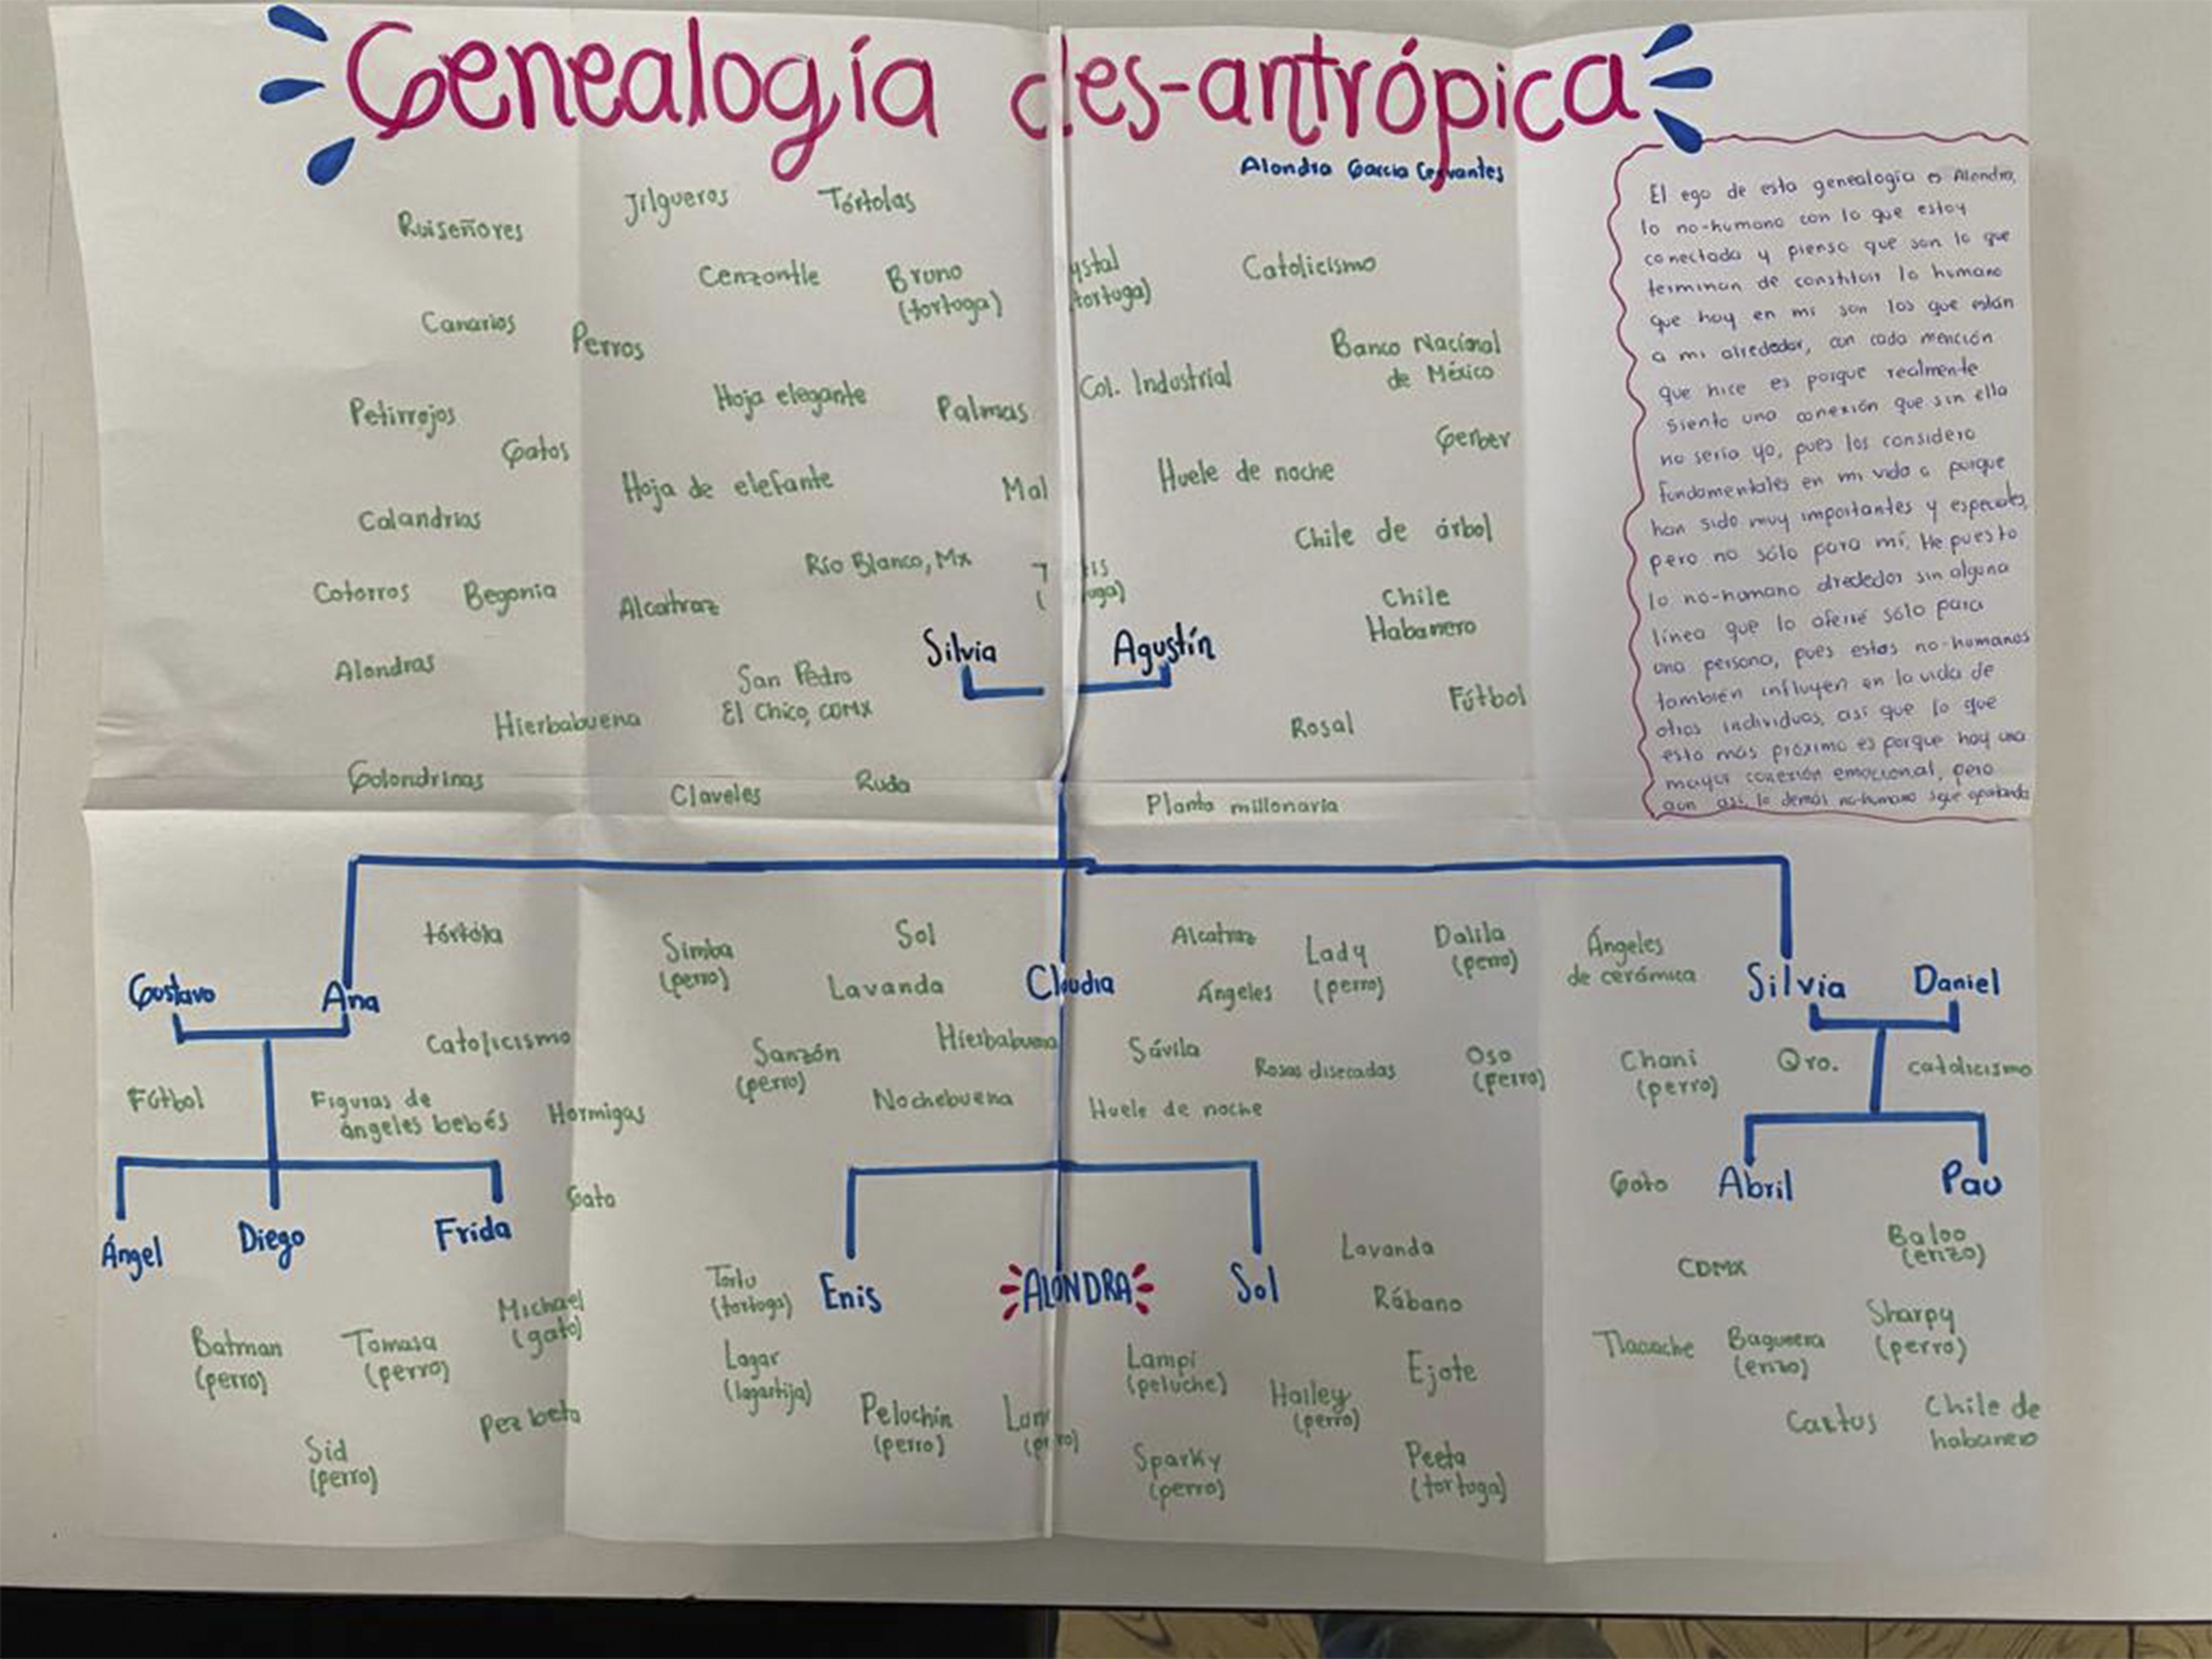 Genealogía des-antrópica
Alondra García Cervantes
El ego de esta genealogía es Alondra,
lo no-humano con lo que estoy
conectada y pienso que son lo que
terminan de constituir lo humano
que hay en mi son los que están
a mi alrededor, con cada mención
que hice es porque realmente
siento una conexión que sin ella
no sería yo, pues los considero
fundamentales en mi vida o porque
han sido muy importantes y especiales,
pero no sólo para mí. He puesto
lo no-humano alrededor sin alguna
línea que lo aferré sólo para
una persona, pues estos no-humanos
también influyen en la vida de
otros individuos, así que lo que
esta más próximo es porque hay una
mayor conexión emocional, pero
aun así lo demás no-humano sigue aportando
Ruiseñores
Jilgueros
Tórtolas
Cenzontle
Bruno
(tortuga)
ystal
tortuga)
Catolicismo
Canarios
Perros
Banco Nacional
de México
Hoja elegante
Palmas
Col. Industrial
Petirrojos
Gatos
Gerber
Hoja de elefante
Mal
Huele de noche
Calandrias
Chile de árbol
Río Blanco, Mx
Cotorros
Begonia
Alcatraz
is
uga)
Chile
Habanero
Silvia
Agustín
Alondras
San Pedro
El Chico, CDMX
Hierbabuena
Rosal
Fútbol
Golondrinas
Claveles
Ruda
Planta millonaria
tórtola
Simba
(perro)
Sol
Lavanda
Claudia
Alcatraz
Ángeles
Lady
(perro)
Dalila
(perro)
Ángeles
de cerámica
Gustavo
Ana
Silvia
Daniel
Catolicismo
Sanzón
(perro)
Hierbabuena
Sávila
Rosas disecadas
Oso
(perro)
Chani
(perro)
Qro.
catolicismo
Fútbol
Figuras de
ángeles bebés
Hormigas
Nochebuena
Huele de noche
Gato
Gato
Abril
Pau
Ángel
Diego
Frida
Tortu
(tortuga)
Enis
ALONDRA
Sol
Lavanda
Rábano
CDMX
Baloo
(erizo)
Batman
(perro)
Tomasa
(perro)
Michael
(gato)
Lagar
(lagartija)
Lampi
(peluche)
Hailey
(perro)
Ejote
Tlacuache
Baguera
(erizo)
Sharpy
(perro)
Sid
(perro)
Pez beta
Peluchín
(perro)
Lun
(perro)
Sparky
(perro)
Peeta
(tortuga)
Cactus
Chile de
habanero